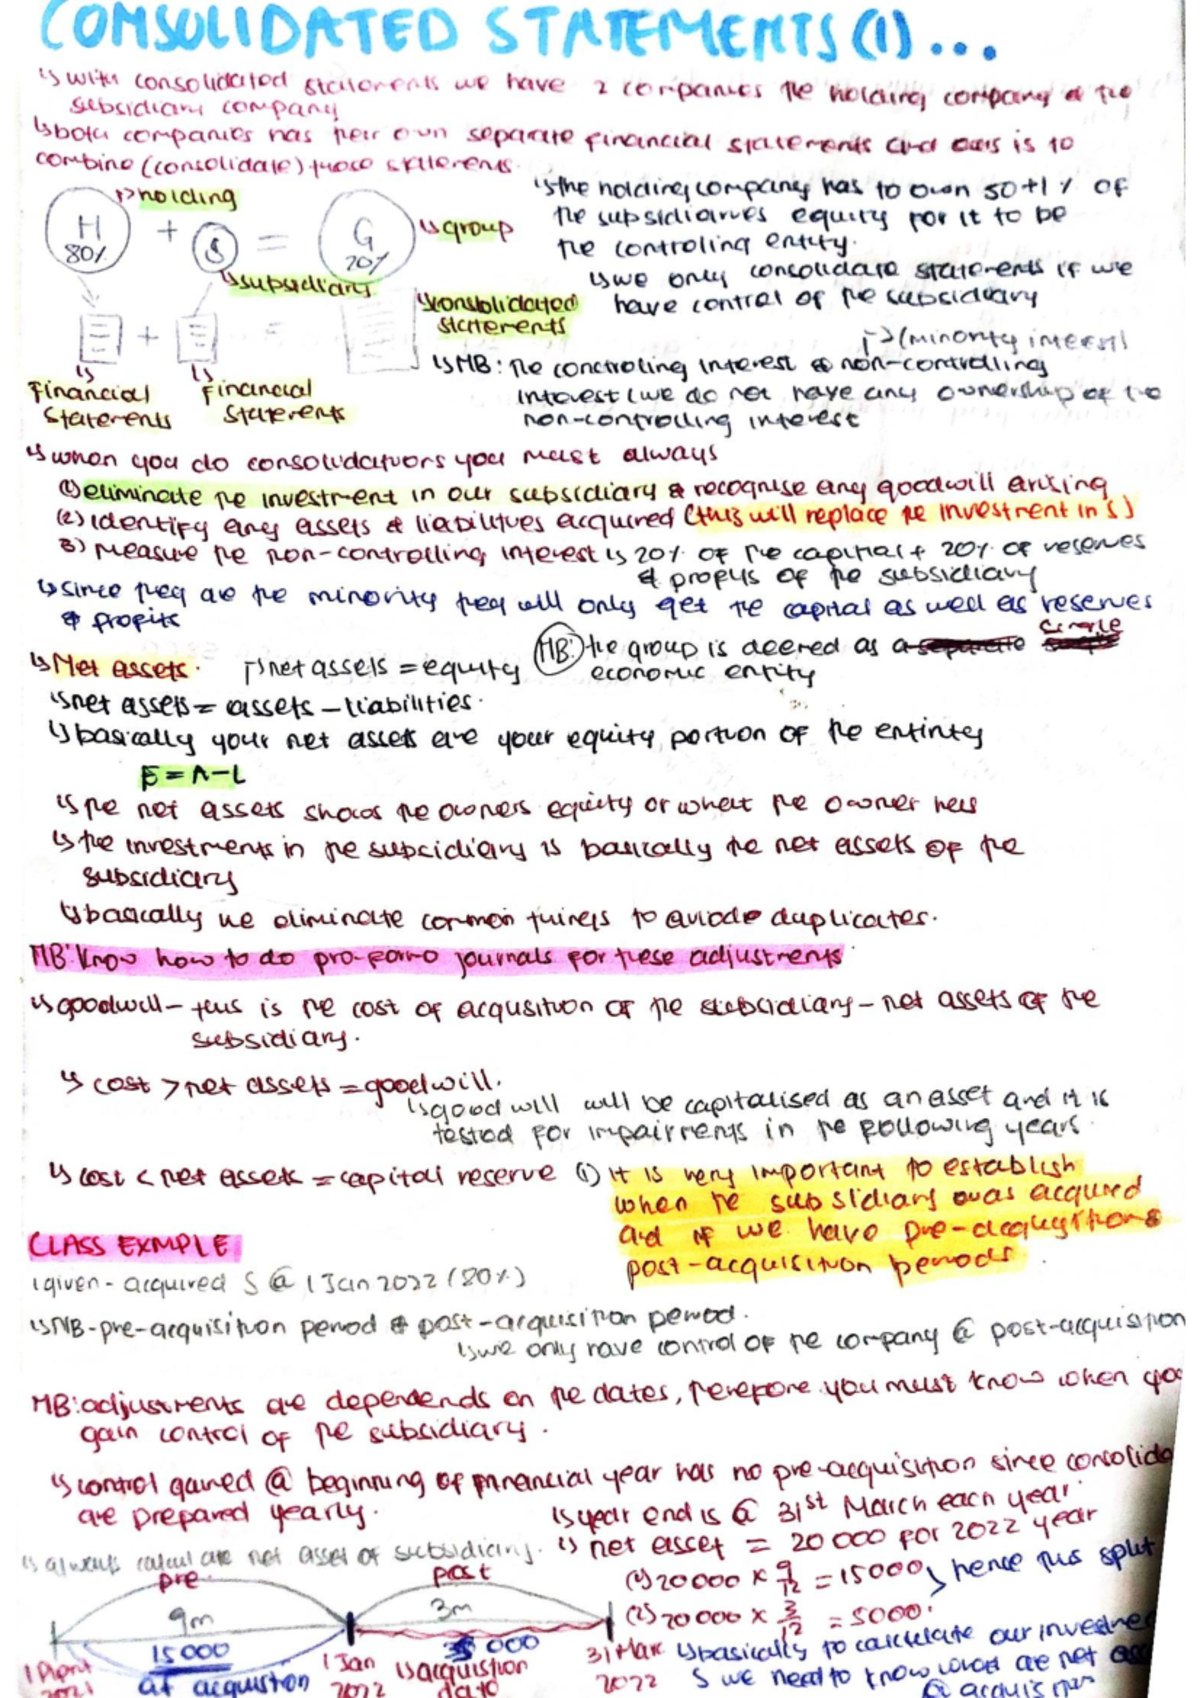 CONSOLIDATED STATEMENTS (1)...
↳ with consolidated statements we have 2 companies the holding company & the
subsidiary company
↳ both companies has their own separate financial statements and ours is to
combine (consolidate) those statements.
↳ holding
H
80%
+
S
=
G
20%
↳ group
↳ subsidiary
↳ consolidated
statements
+
=
↳ Financial
statements
↳ Financial
statements
↳ the holding company has to own 50+1% of
the subsidiaries equity for it to be
the controling entity.
↳ we only consolidate statements if we
have control of the subsidiary
↳ (minority interest)
↳ NB: The controling interest & non-controlling
interest (we do not have any ownership of the
non-controlling interest
↳ when you do consolidations you must always
(1) eliminate the investment in our subsidiary & recognise any goodwill arising
(2) identify any assets & liabilities acquired (this will replace the investment in S)
3) Measure the non-controlling interest ↳ 20% of the capital + 20% of reserves
& profits of the subsidiary
↳ since they are the minority they will only get the capital as well as reserves
& profits
NB: the group is deemed as a separate single
economic entity
↳ Net assets. ↳ net assets = equity
↳ net assets = assets - liabilities.
↳ basically your net assets are your equity portion of the entintey
E = A - L
↳ the net assets shows the owners equity or what the owner has
↳ the investments in the subsidiary is basically the net assets of the
subsidiary
↳ basically we eliminate common things to aviode duplicates.
NB: Know how to do pro-forma journals for these adjustments
↳ goodwill - this is the cost of acqusition of the subsidiary - net assets of the
subsidiary.
↳ cost > net assets = goodwill.
↳ good will will be capitalised as an asset and it is
tested for impairments in the following years.
↳ cost < net assets = capital reserve (1) It is very important to establish
when the subsidiary was acquired
and if we have pre-acquisition &
post-acquisition periods.
CLASS EXMPLE
given - acquired S @ 1 Jan 2022 (80%)
↳ NB-pre-acquisition period & post-acquisition period.
↳ we only have control of the company @ post-acquisition
NB: adjustments are dependends on the dates, therefore you must know when you
gain control of the subsidiary.
↳ control gained @ beginning of financial year has no pre-acquisition since consolida
are prepared yearly.
↳ year end is @ 31st March each year.
↳ always calculate net asset of subsidiary.
↳ net asset = 20 000 for 2022 year
(1) 20 000 × 9/12 = 15000 ↳ hence this split
(2) 20 000 × 3/12 = 5000.
pre
post
9m
3m
15 000
5 000
at acquistion
1 April
2021
1 Jan
2022
↳ acquistion
date
31 Mar
2022
↳ basically to calculate our investme
S we need to know what are net ass
@ acquis